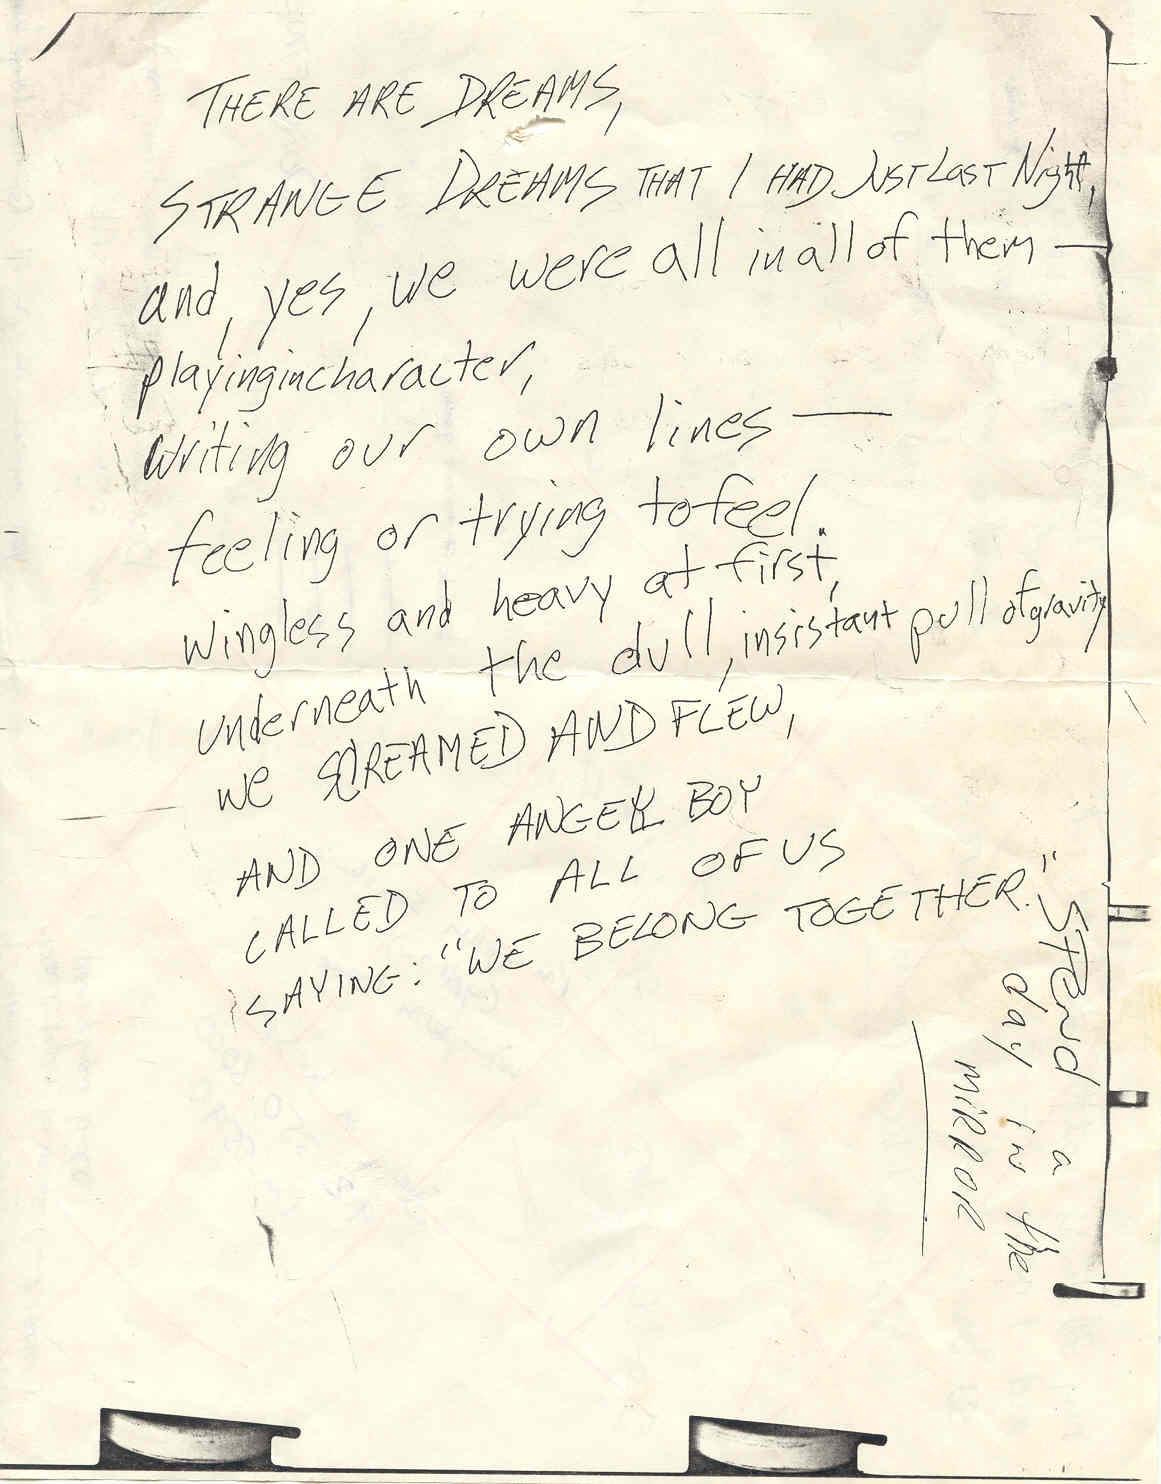 THERE ARE DREAMS,
STRANGE DREAMS THAT I HAD JUST LAST Night,
and, yes, we were all in all of them —
playingincharacter,
writing our own lines —
feeling or trying to feel.
wingless and heavy at first,
underneath the dull, insistant pull of gravity
we SCREAMED AND FLEW,
AND ONE ANGEL BOY
CALLED TO ALL OF US
SAYING: "WE BELONG TOGETHER."
SPEND a
day in the
MIRROR